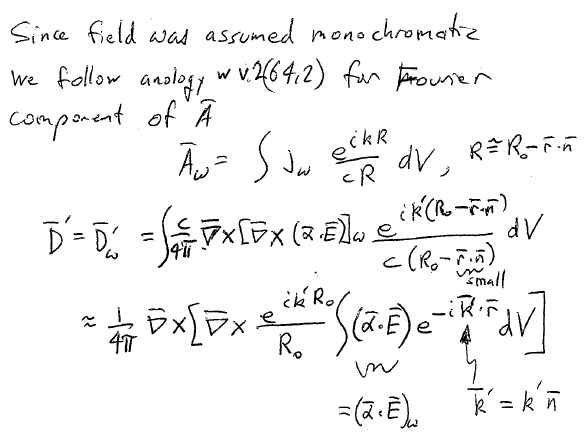 Since field was assumed monochromatic
we follow analogy w v.2(64,2) for Fourier
component of A̅
A̅_ω = ∫ j_ω e^{ikR}/cR dV, R ≅ R₀ - r̅·n̅
D̅' = D̅'_ω = ∫ c/4π ∇̅×[∇̅×(α̅·E̅)]_ω e^{ik'(R₀-r̅·n̅)}/c(R₀-r̅·n̅) dV
small
≈ 1/4π ∇̅×[∇̅× e^{ik'R₀}/R₀ ∫(α̅·E̅) e^{-ik̅'·r̅} dV]
=(α̅·E̅)_ω k̅' = k'n̅